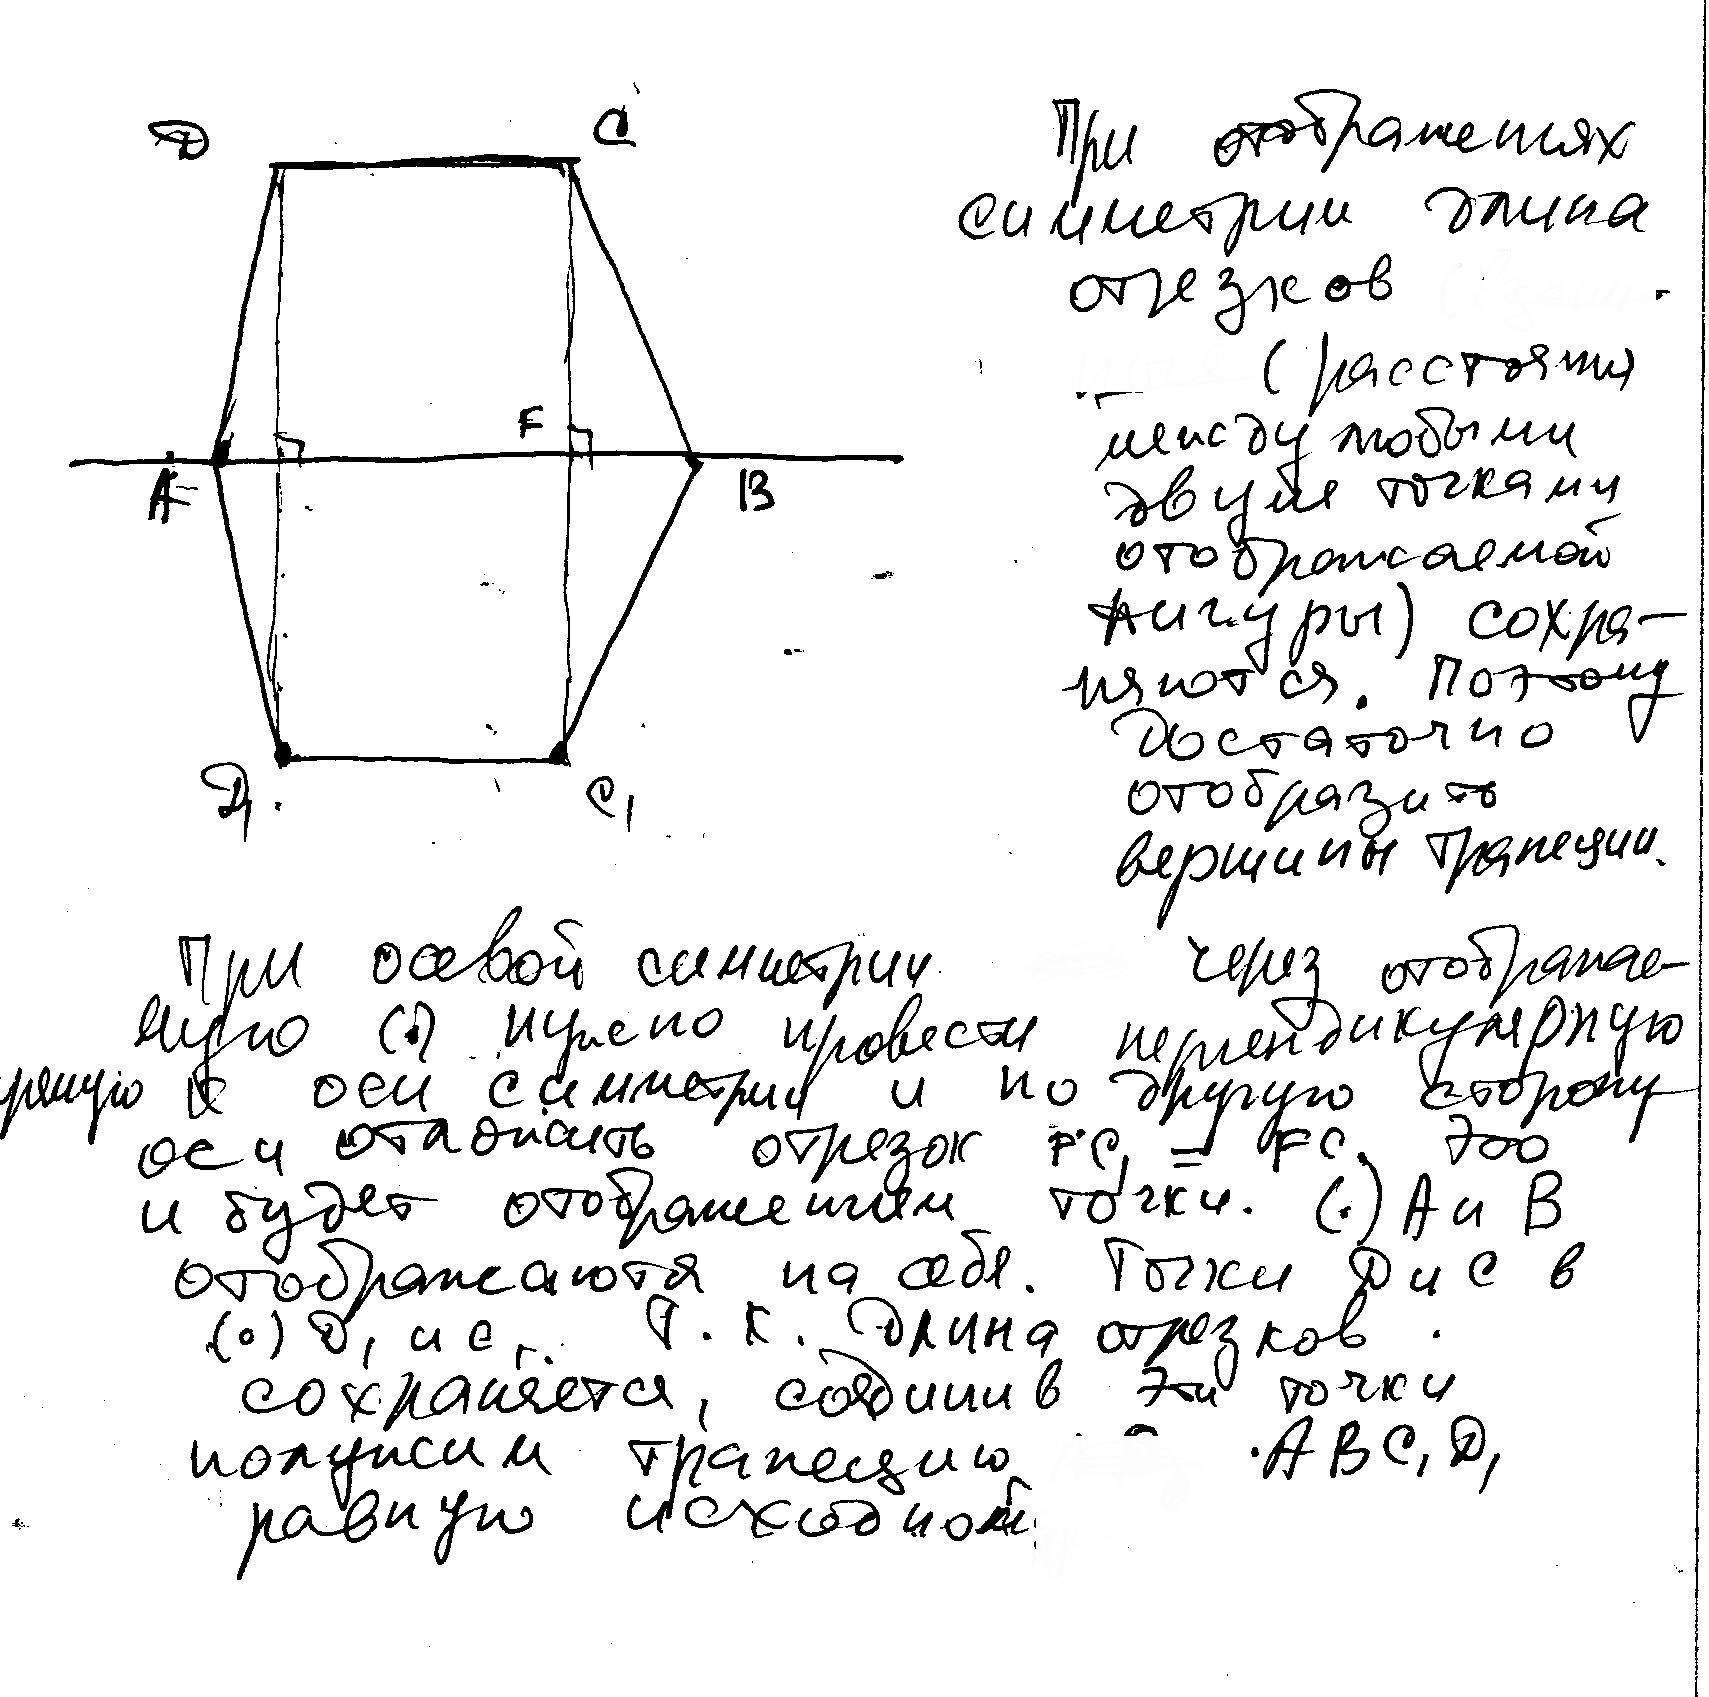 D C
F
A B
D₁. C₁
При отображениях
симметрии длина
отрезков
(расстояния
между любыми
двумя точками
отображаемой
фигуры) сохра-
няются. Поэтому
достаточно
отобразить
вершины трапеции.
При осевой симметрии через отображае-
мую (.) нужно провести перпендикулярную
прямую к оси симметрии и по другую сторону
оси отложить отрезок FC₁ = FC. Это
и будет отображением точки. (.) A и B
отображаются на себя. Точки D и C в
(.) D₁ и C₁. Т.к. длина отрезков
сохраняется, соединив эти точки
получим трапецию ABC₁D₁
равную исходной